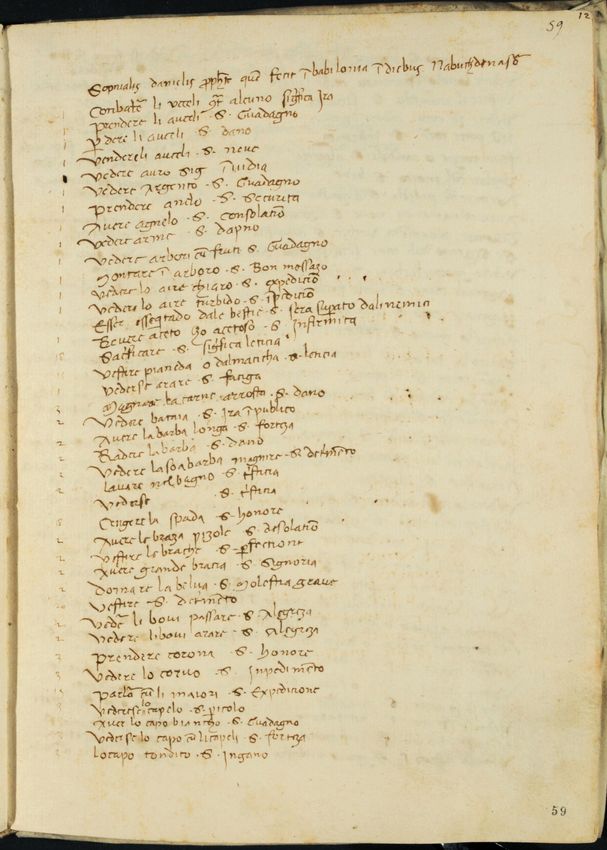 59
12
Sopnialis danielis ꝓph̄e que fecit ī babilonia ī diebus Nabuchdenasō
Conbatē li vcelli ꝯt alcuno significa Ira
prendere li aucelli .S. Guadagno
ꝑdere li aucelli .S. dano
vendereli aucelli .S. neue
vedere auro sig īuidia
vedere Argento .S. Guadagno
prendere anelo .S. Securita
Auere agnelo .S. Consolatiō
vedere arme .S. dapno
vedere arbori cū fruti S. Guadagno
Montare ī arboro .S. Bon messazo
vedere lo aire chiaro .S. expeditiō
vedere lo aire turbido .S. īpeditiō
Esser seguitado dale bestie .S. sera supato dalinemici
Beuere aceto acetoso .S. Infirmita
Sacrificare .S. significa leticia
vestire pianeda o dalmaticha .S. leticia
vederse arare .S. fatiga
Magnar la carne arrosto .S. dano
vedere bataia .S. Ira ī publico
Auere la barba longa .S. forteza
Radere la barba .S. dano
vedere la soa barba .S. detimēto
lauare nel bagno .S.
vederse .S.
Cengere la spada .S. honore
Auere le braza .S. desolatiō
vestire le brache .S. ꝑfectione
Auere grande bracia .S. Signoria
Domare la belua .S. Molestia graue
vestire .S. detimēto
vedē li boui passare .S. Alegreza
vedere li boui arare .S. Alegreza
prendere corona .S. honore
vedere lo coruo .S. Inpedimēto
parlar cū li maiori .S. Expedicione
vederese lo capelo .S. picolo
Auer lo capo biancho .S. Guadagno
vederse lo capo cū li capeli .S. forteza
lo capo tondito .S. Ingano
59